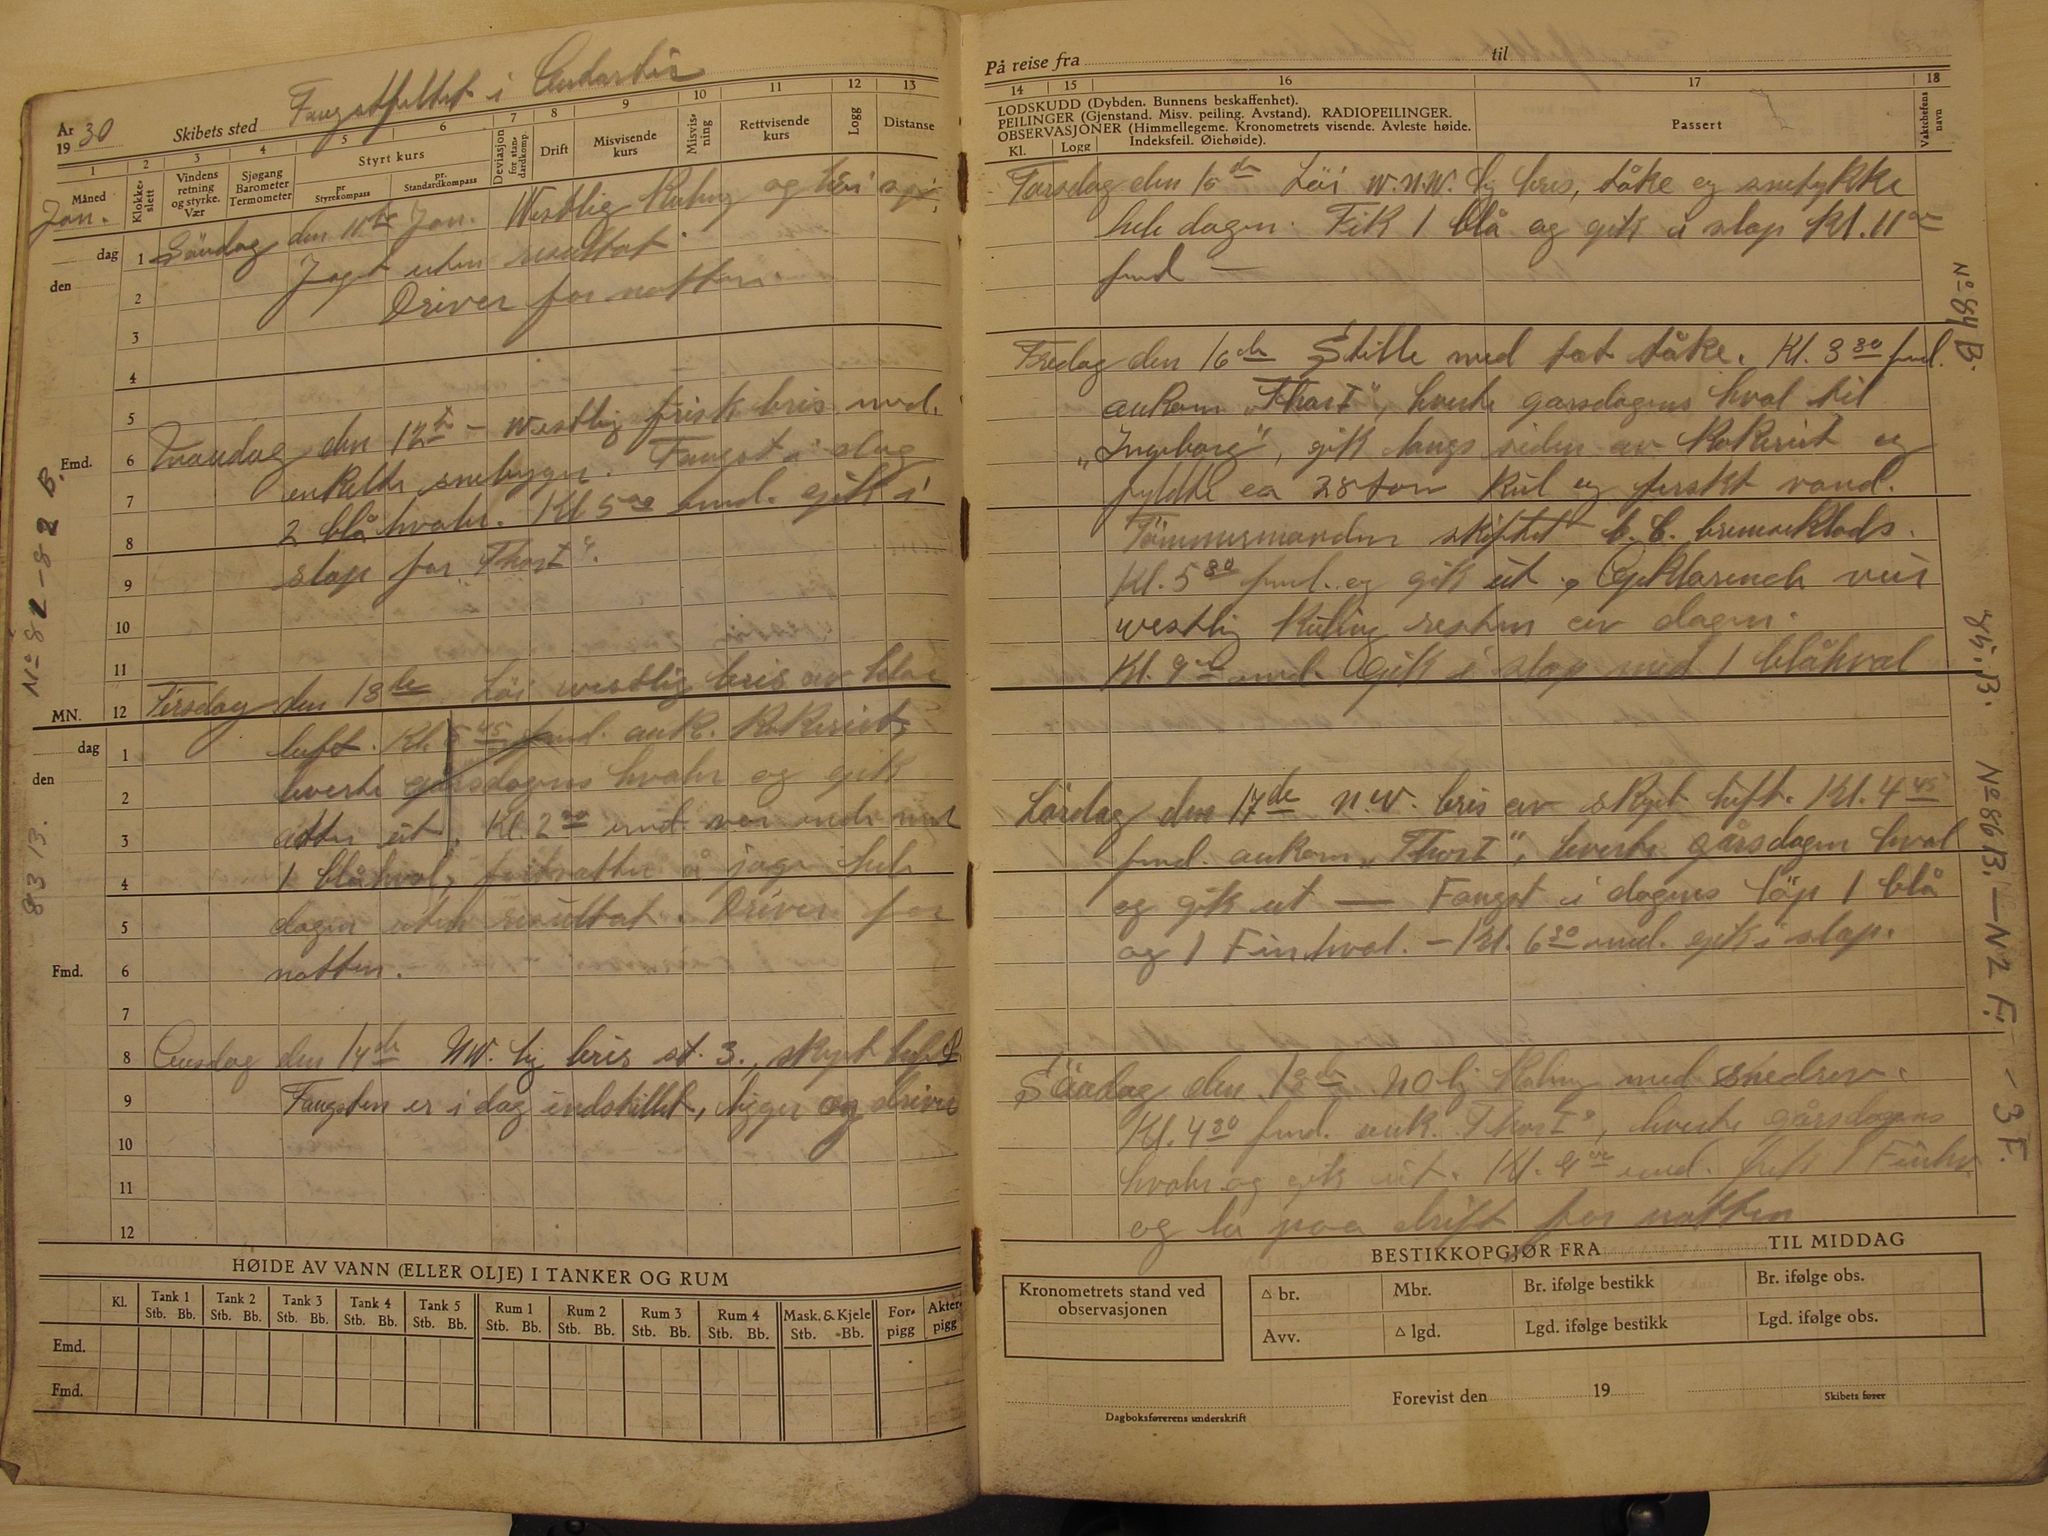 År 1930
Skibets sted Fangstfeltet i Antarktis
1 2 3 4 5 6 7 8 9 10 11 12 13
Måned
Klokkeslett
Vindens retning og styrke. Vær
Sjøgang Barometer Termometer
Styrt kurs
pr Styrekompass
pr. Standardkompass
Deviasjon for standardkomp.
Drift
Misvisende kurs
Misvisning
Rettvisende kurs
Logg
Distanse
Jan.
Söndag den 11te Jan. Westlig Kuling og høi sjö.
Jagt uten resultat.
Driver for natten.
Mandag den 12te – Westlig frisk bris med
enkelte snebyger. Fangst i dag
2 blåhvaler. Kl 5 00 emd. gik i
slap for "Thor I".
Tirsdag den 13de Löi westlig bris av klar
luft. Kl. 5 45 fmd. ank. Kokeriet,
leverte gårsdagens hvaler og gik
atter ut. Kl. 2 30 emd var inde med
1 blåhval, fortsatte å jage hele
dagen uten resultat. Driver for
natten.
Onsdag den 14de NW. lig bris st. 3., skyet luft
Fangsten er i dag indstillet, ligger og driver
dag
den
Emd.
MN.
dag
den
Fmd.
1
2
3
4
5
6
7
8
9
10
11
12
1
2
3
4
5
6
7
8
9
10
11
12
No 81-82 B.
83 B.
HØIDE AV VANN (ELLER OLJE) I TANKER OG RUM
Kl. Tank 1 Tank 2 Tank 3 Tank 4 Tank 5 Rum 1 Rum 2 Rum 3 Rum 4 Mask. & Kjele Forpigg Akterpigg
Stb. Bb. Stb. Bb. Stb. Bb. Stb. Bb. Stb. Bb. Stb. Bb. Stb. Bb. Stb. Bb. Stb. Bb. Stb. Bb.
Emd.
Fmd.
På reise fra til
14 15 16 17 18
LODSKUDD (Dybden. Bunnens beskaffenhet).
PEILINGER (Gjenstand. Misv. peiling. Avstand). RADIOPEILINGER.
OBSERVASJONER (Himmellegeme. Kronometrets visende. Avleste høide.
Indeksfeil. Øiehøide).
Kl. Logg
Passert
Vaktchefens navn
Torsdag den 15de Löi W.N.W. lig bris, tåke og snetykke
hele dagen. Fik 1 blå og gik i slap Kl. 11 00
fmd —
Fredag den 16de Stille med tæt tåke. Kl. 3 30 fmd.
ankom "Thor I", leverte garsdagens hval til
"Ingeborg", gik langs siden av Kokeriet og
fyldte ca 28 ton Kul og ferskt vand.
Tömmermanden skiftet b. b. bremseklods.
Kl. 5 30 fmd. og gik ut. Opklarende veir
westlig Kuling resten av dagen.
Kl. 9 00 emd. Gik i slap med 1 blåhval
Lördag den 17de N.W. bris av skyet luft. Kl. 4 45
fmd. ankom "Thor I", leverte gårsdagen hval
og gik ut — Fangst i dagens löp 1 blå
og 1 Finhval. – Kl. 6 30 emd. gik i slap.
Söndag den 18de NO lig Kuling med snedrev.
Kl. 4 30 fmd. ank. "Thor I", leverte gårsdagens
hvaler og gik ut. Kl. 9 00 emd. fik 1 Finhv
og la paa drift for natten
No 84 B.
85 B.
No 86 B. – N 2 F.
– 3 F.
BESTIKKOPGJØR FRA TIL MIDDAG
Kronometrets stand ved observasjonen
△ br. Mbr. Br. ifølge bestikk Br. ifølge obs.
Avv. △ lgd. Lgd. ifølge bestikk Lgd. ifølge obs.
Forevist den 19
Dagboksførerens underskrift
Skibets fører